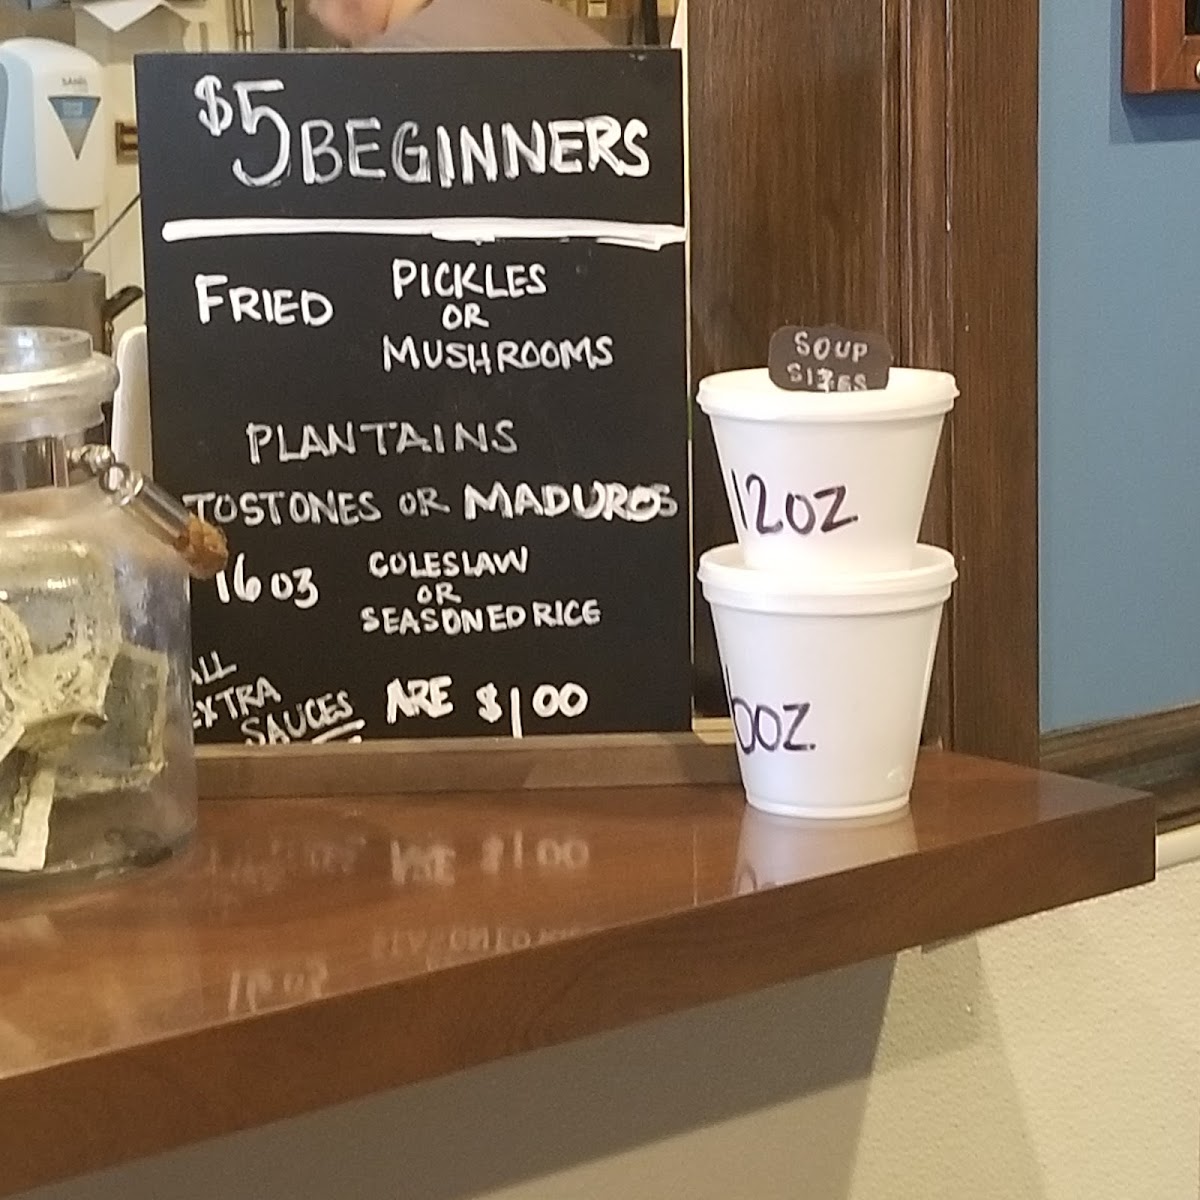 $5 BEGINNERS
FRIED PICKLES
OR
MUSHROOMS
PLANTAINS
TOSTONES OR MADUROS
16 oz COLESLAW
OR
SEASONED RICE
ALL
EXTRA
SAUCES ARE $1.00
SOUP
SIZES
12OZ